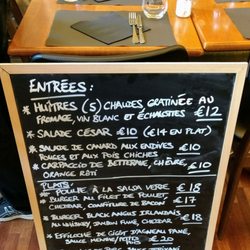 ENTRÉES:
* HUÎTRES (5) CHAUDES GRATINÉE AU
FROMAGE, VIN BLANC ET ÉCHALOTTES €12
* SALADE CÉSAR €10 (€14 EN PLAT)
* SALADE DE CANARD AUX ENDIVES €10
ROUGES ET AUX POIS CHICHES
* CARPACCIO DE BETTERAVE, CHÈVRE, €10
ORANGE RÔTI
PLATS:
* POULPE À LA SALSA VERDE €18
* BURGER AU FILET DE POULET,
CHEDDAR, CONFITURE DE BACON €17
* BURGER BLACK ANGUS IRLANDAIS €18
AU WHISKEY, JAMBON FUMÉ, CHEDDAR
* EFFILOCHÉ DE GIGOT D'AGNEAU PANÉ,
SAUCE MENTHE/PETITS €20